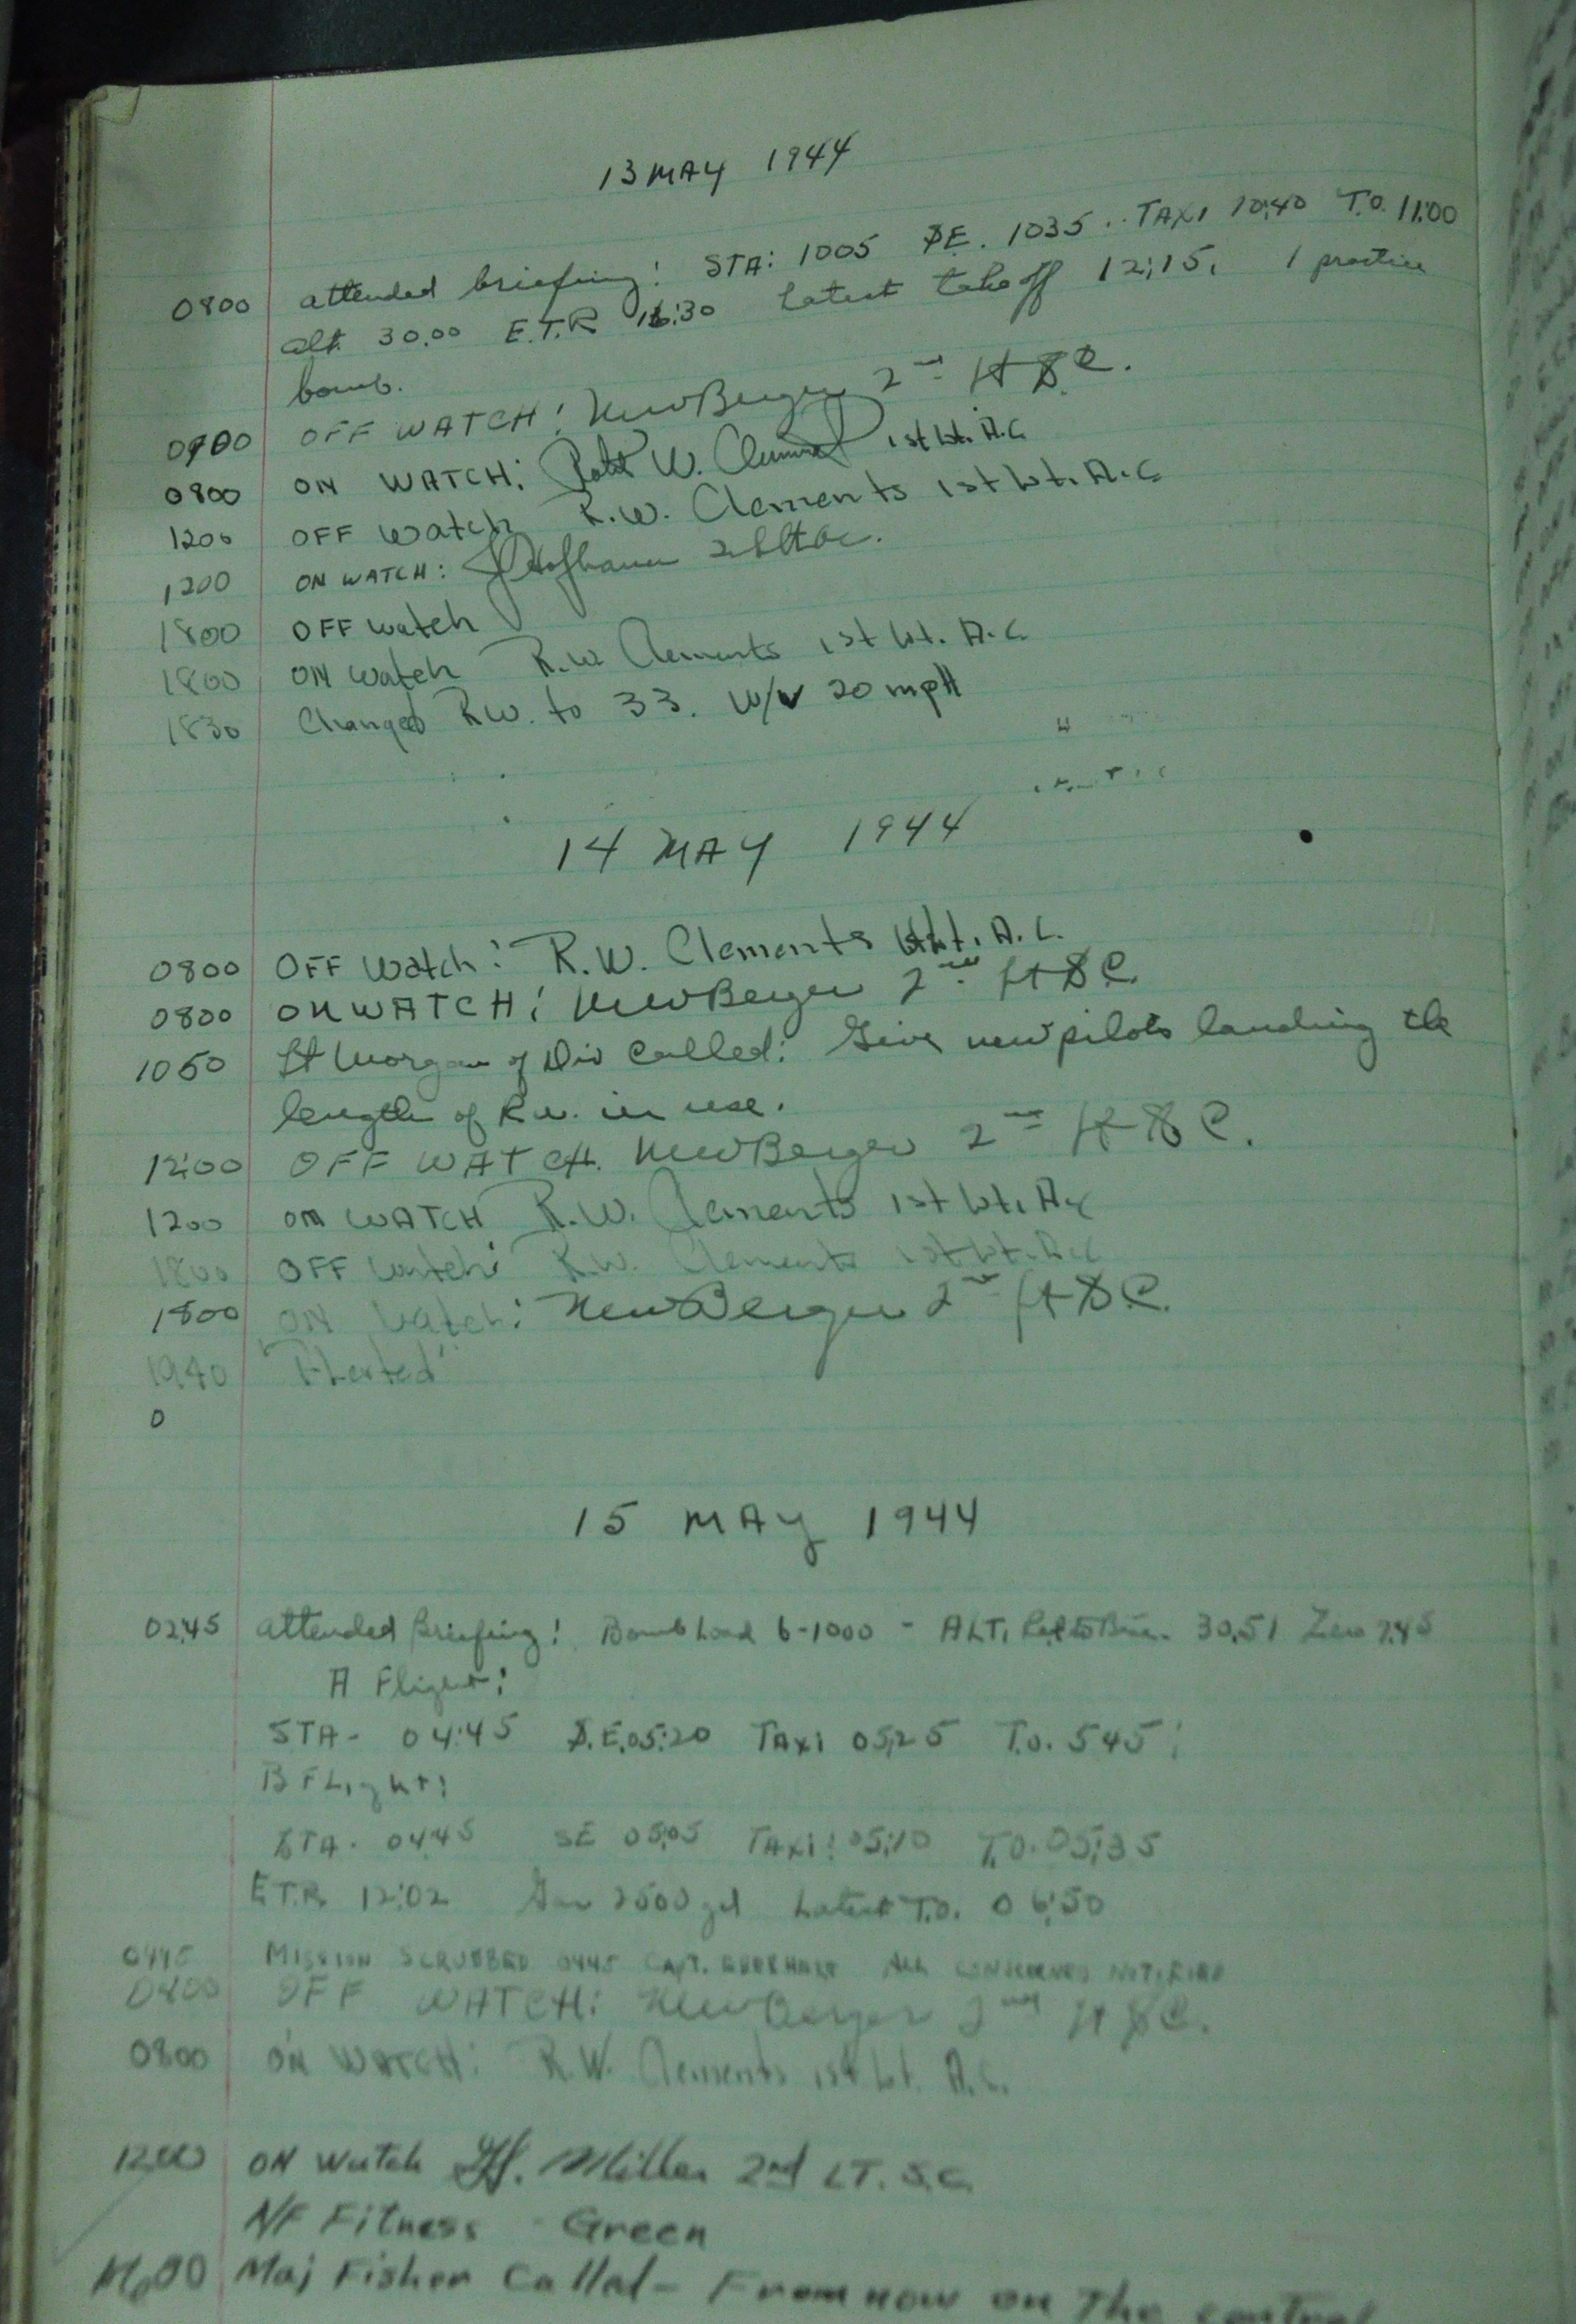 13 MAY 1944
0800 attended briefing! STA: 1005 S.E. 1035.. TAXI 10:40 T.O. 11:00
alt. 30.00 E.T.R 16:30 Latest takeoff 12:15. 1 practice
bomb.
OFF WATCH! NewBerger 2nd Lt S.C.
0800 ON WATCH: Robt W. 1st Lt. A.C
1200 OFF Watch R.W. Clements 1st Lt. A.C
1200 ON WATCH:
1800 OFF watch
1800 ON Watch R.W. Clements 1st Lt. A.C
1830 Changed R.W. to 33. W/V 20 mpH
14 MAY 1944
0800 OFF Watch: R.W. Clements 1st Lt. A.C.
0800 ON WATCH: NewBerger 2nd Lt S.C.
1050 Lt Morgan of Div called: Give new pilots landing the
length of R.w. in use.
12:00 OFF WATCH. NewBerger 2nd Lt S.C.
1200 ON WATCH R.W. Clements 1st Lt. A.C
1800 OFF watch: R.W. Clements 1st Lt. A.C
1800 ON Watch: NewBerger 2nd Lt S.C.
1940 "Alerted"
0
15 MAY 1944
0245 attended Briefing! Bomb Load 6-1000 - ALT. 30.51 Zero 745
A Flight:
STA- 04:45 S.E. 05:20 TAXI 05:25 T.O. 545
B FLight:
STA- 0445 SE 05:05 TAXI: 05:10 T.O. 05:35
E.T.R. 12:02 Gas 2500 gal Latest T.O. 06:50
0445 MISSION SCRUBBED 0445 CAPT. ALL CONCERNED NOTIFIED
0800 OFF WATCH: NewBerger 2nd Lt S.C.
0800 ON WATCH: R.W. Clements 1st Lt. A.C.
1200 ON Watch H. Miller 2nd LT. S.C.
NF Fitness Green
Maj Fisher Called - From now on The control